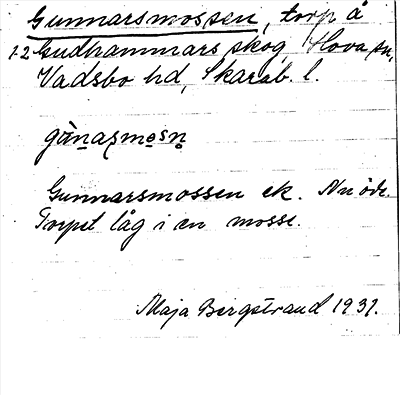 Gunnarsmossen, torp å
1-2 Gudhammars skog, Hova sn,
Vadsbo hd, Skarab. l.
gànaʂmosn̥
Gunnarsmossen ek. Nu öde.
Torpet låg i en mosse.
Maja Bergstrand 1931.